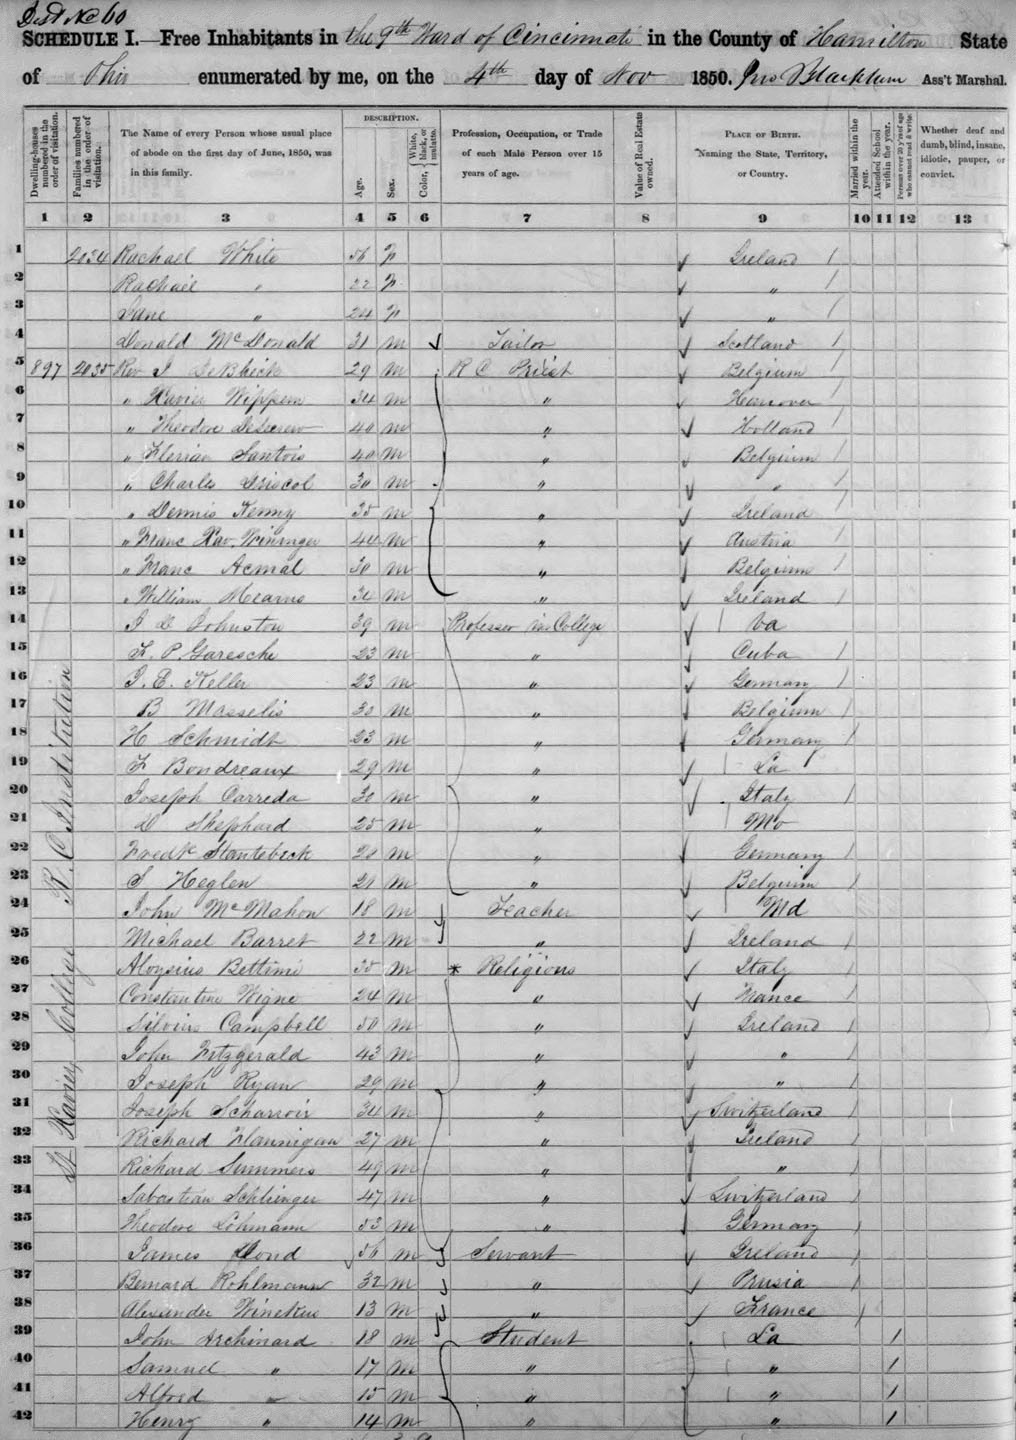 Dist No 60
SCHEDULE I.—Free Inhabitants in the 9th Ward of Cincinnati in the County of Hamilton State
of Ohio enumerated by me, on the 4th day of Nov 1850. Jno Blackburn Ass't Marshal.
Dwelling-houses numbered in the order of visitation.
Families numbered in the order of visitation.
The Name of every Person whose usual place of abode on the first day of June, 1850, was in this family.
DESCRIPTION.
Age.
Sex.
Color, White, black, or mulatto.
Profession, Occupation, or Trade of each Male Person over 15 years of age.
Value of Real Estate owned.
PLACE OF BIRTH. Naming the State, Territory, or Country.
Married within the year.
Attended School within the year.
Persons over 20 y'rs of age who cannot read & write.
Whether deaf and dumb, blind, insane, idiotic, pauper, or convict.
1 2 3 4 5 6 7 8 9 10 11 12 13
1 2034 Rachael White 56 F Ireland /
2 Rachael " 22 F " /
3 Jane " 24 F " /
4 Donald McDonald 31 M Tailor Scotland /
5 897 2035 Rev I DeBlieck 29 M R C Priest Belgium /
6 " Xavier Wippern 34 M " Hanover /
7 " Theodore 40 M " Holland /
8 " Florian Santois 40 M " Belgium /
9 " Charles Driscol 30 M " " /
10 " Dennis Kenny 35 M " Ireland /
11 " Franc Xav. Wininger 44 M " Austria /
12 " Franc Acmal 30 M " Belgium /
13 " William Mearns 34 M " Ireland /
14 J D Johnston 39 M Professor in College / Va
15 F. P. Garesche 23 M " Cuba /
16 J. E. Keller 23 M " Germany /
17 B Masselis 30 M " Belgium /
18 H Schmidt 23 M " Germany /
19 F Bondreaux 29 M " / La
20 Joseph Carreda 30 M " Italy /
21 D Shephard 25 M " / Mo
22 Fredk Stantebeck 28 M " Germany /
23 S Heglen 21 M " Belgium /
24 John McMahon 18 M Teacher / Md
25 Michael Barret 22 M " Ireland /
26 Aloysius Bettimi 35 M * Religious Italy /
27 Constantine Vigne 24 M " France /
28 Silvius Campbell 50 M " Ireland /
29 John Fitzgerald 43 M " " /
30 Joseph Ryan 29 M " " /
31 Joseph Scharroir 34 M " Switzerland /
32 Richard Flannigan 27 M " Ireland /
33 Richard Summers 49 M " " /
34 Sabastian Schlienger 47 M " Switzerland /
35 Theodore Lohmann 53 M " Germany /
36 James Dond 56 M Servant Ireland /
37 Bernard Rohlmann 32 M " Prusia /
38 Alexander Winekus 13 M " France /
39 John Archinard 18 M Student La 1
40 Samuel " 17 M " " 1
41 Alfred " 15 M " " 1
42 Henry " 14 M " " 1
St Xavier College R. C Institution